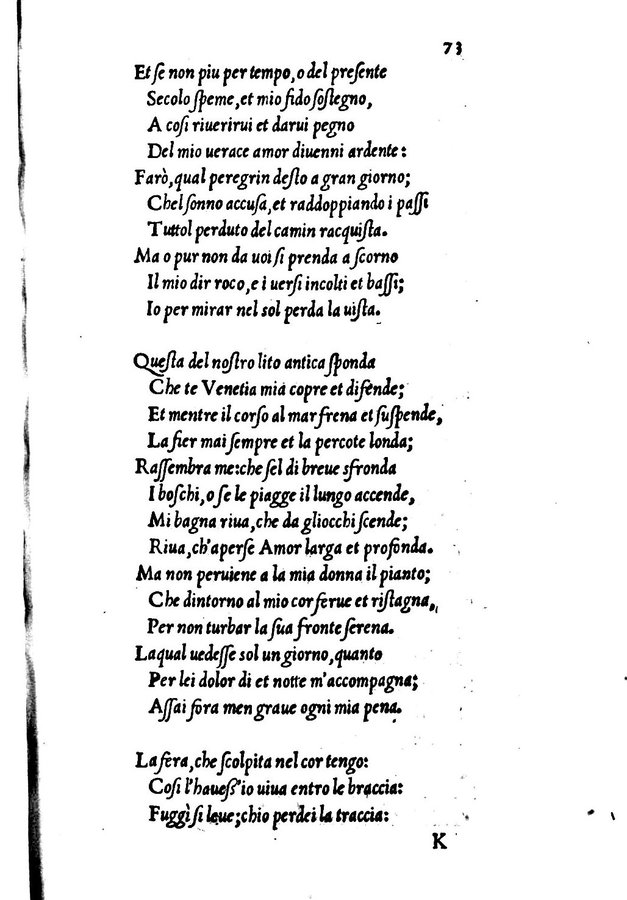 73
Et ſe non piu per tempo, o del preſente
Secolo ſpeme, et mio fido ſoſtegno,
A coſi riuerirui et darui pegno
Del mio uerace amor diuenni ardente:
Farò, qual peregrin deſto a gran giorno;
Chel ſonno accuſa, et raddoppiando i paſſi
Tuttol perduto del camin racquiſta.
Ma o pur non da uoi ſi prenda a ſcorno
Il mio dir roco, e i uerſi incolti et baſſi;
Io per mirar nel sol perda la uiſta.
Queſta del noſtro lito antica ſponda
Che te Venetia mia copre et difende;
Et mentre il corſo al mar frena et ſuſpende,
La fier mai ſempre et la percote londa;
Raſſembra me: che ſel di breue sfronda
I boſchi, o ſe le piagge il lungo accende,
Mi bagna riua, che da gliocchi ſcende;
Riua, ch'aperſe Amor larga et profonda.
Ma non peruiene a la mia donna il pianto;
Che dintorno al mio cor ferue et riſtagna,
Per non turbar la ſua fronte ſerena.
Laqual uedeſſe sol un giorno, quanto
Per lei dolor di et notte m'accompagna;
Aſſai fora men graue ogni mia pena.
La fera, che ſcolpita nel cor tengo:
Coſi l'haueſs'io uiua entro le braccia:
Fuggì ſi leue; chio perdei la traccia:
K